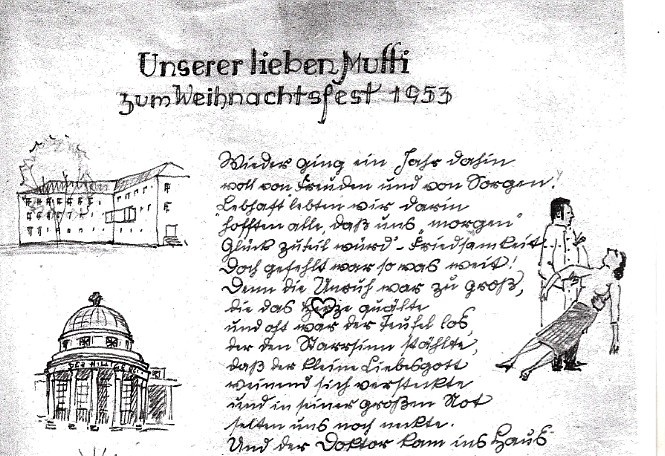 Unserer lieben Mutti
zum Weihnachtsfest 1953
Wieder ging ein Jahr dahin
voll von Freuden und von Sorgen.
Lebhaft lebten wir darin
hofften alle, daß uns „morgen"
Glück zuteil würd'- Friedsamkeit.
Doch gefehlt war so was weit!
Denn die Unruh war zu groß,
die das Herze quälte
und oft war der Teufel los,
der den Starrsinn stählte,
daß der kleine Liebesgott
weinend sich versteckte
und in seiner großen Not
selten uns noch neckte.
Und der Doktor kam ins Haus